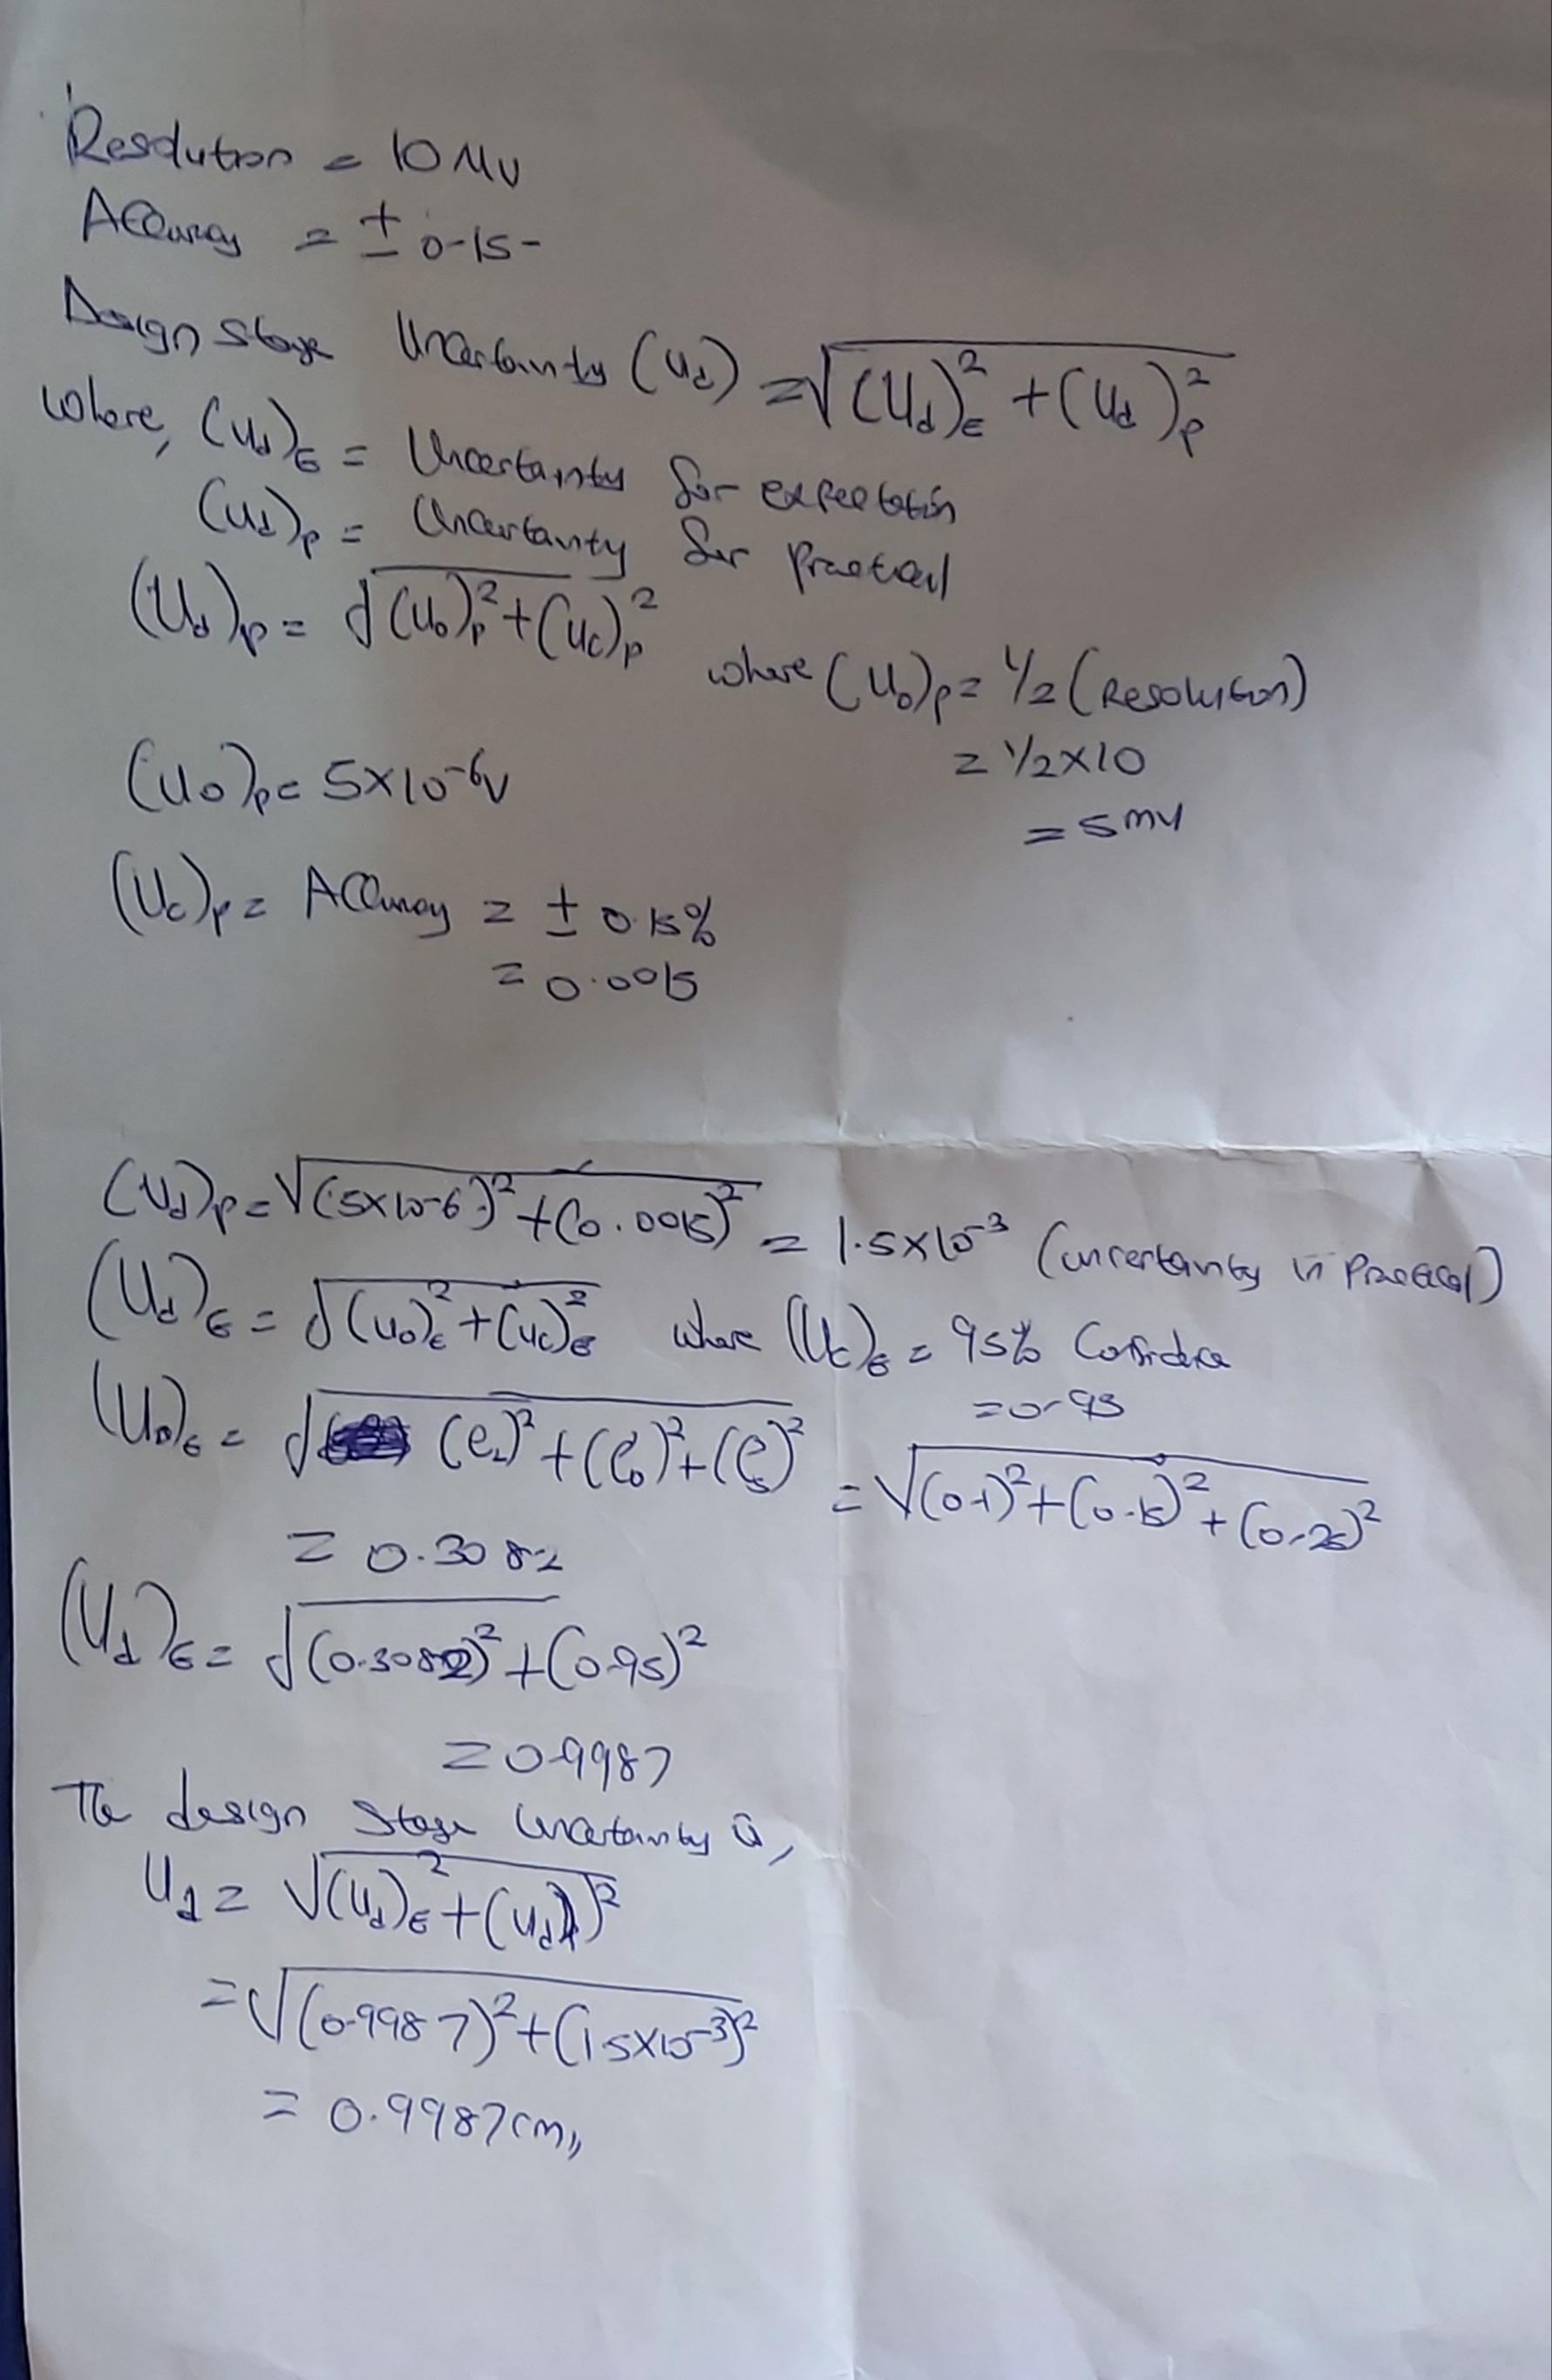 Resolution = 10 MV
Accuracy = ± 0.15-
Design stage Uncertainty (Ud) = √(Ud)²E + (Ud)²P
where, (Ud)E = Uncertainty for expectation
(Ud)P = Uncertainty for Practical
(Ud)P = √(U0)²P + (Uc)²P where (U0)P = 1/2 (Resolution)
= 1/2 × 10
= 5 mV
(U0)P = 5×10⁻⁶V
(Uc)P = Accuracy = ± 0.15%
= 0.0015
(Ud)P = √(5×10-6)² + (0.0015)² = 1.5×10⁻³ (uncertainty in Practical)
(Ud)E = √(U0)²E + (Uc)²E where (Uc)E = 95% Confidence
= 0.95
(U0)E = √(eL)² + (e0)² + (es)² = √(0.1)² + (0.15)² + (0.25)²
= 0.3082
(Ud)E = √(0.3082)² + (0.95)²
= 0.9987
The design stage uncertainty is,
Ud = √(Ud)²E + (Ud)P²
= √(0.9987)² + (1.5×10⁻³)²
= 0.9987cm,,